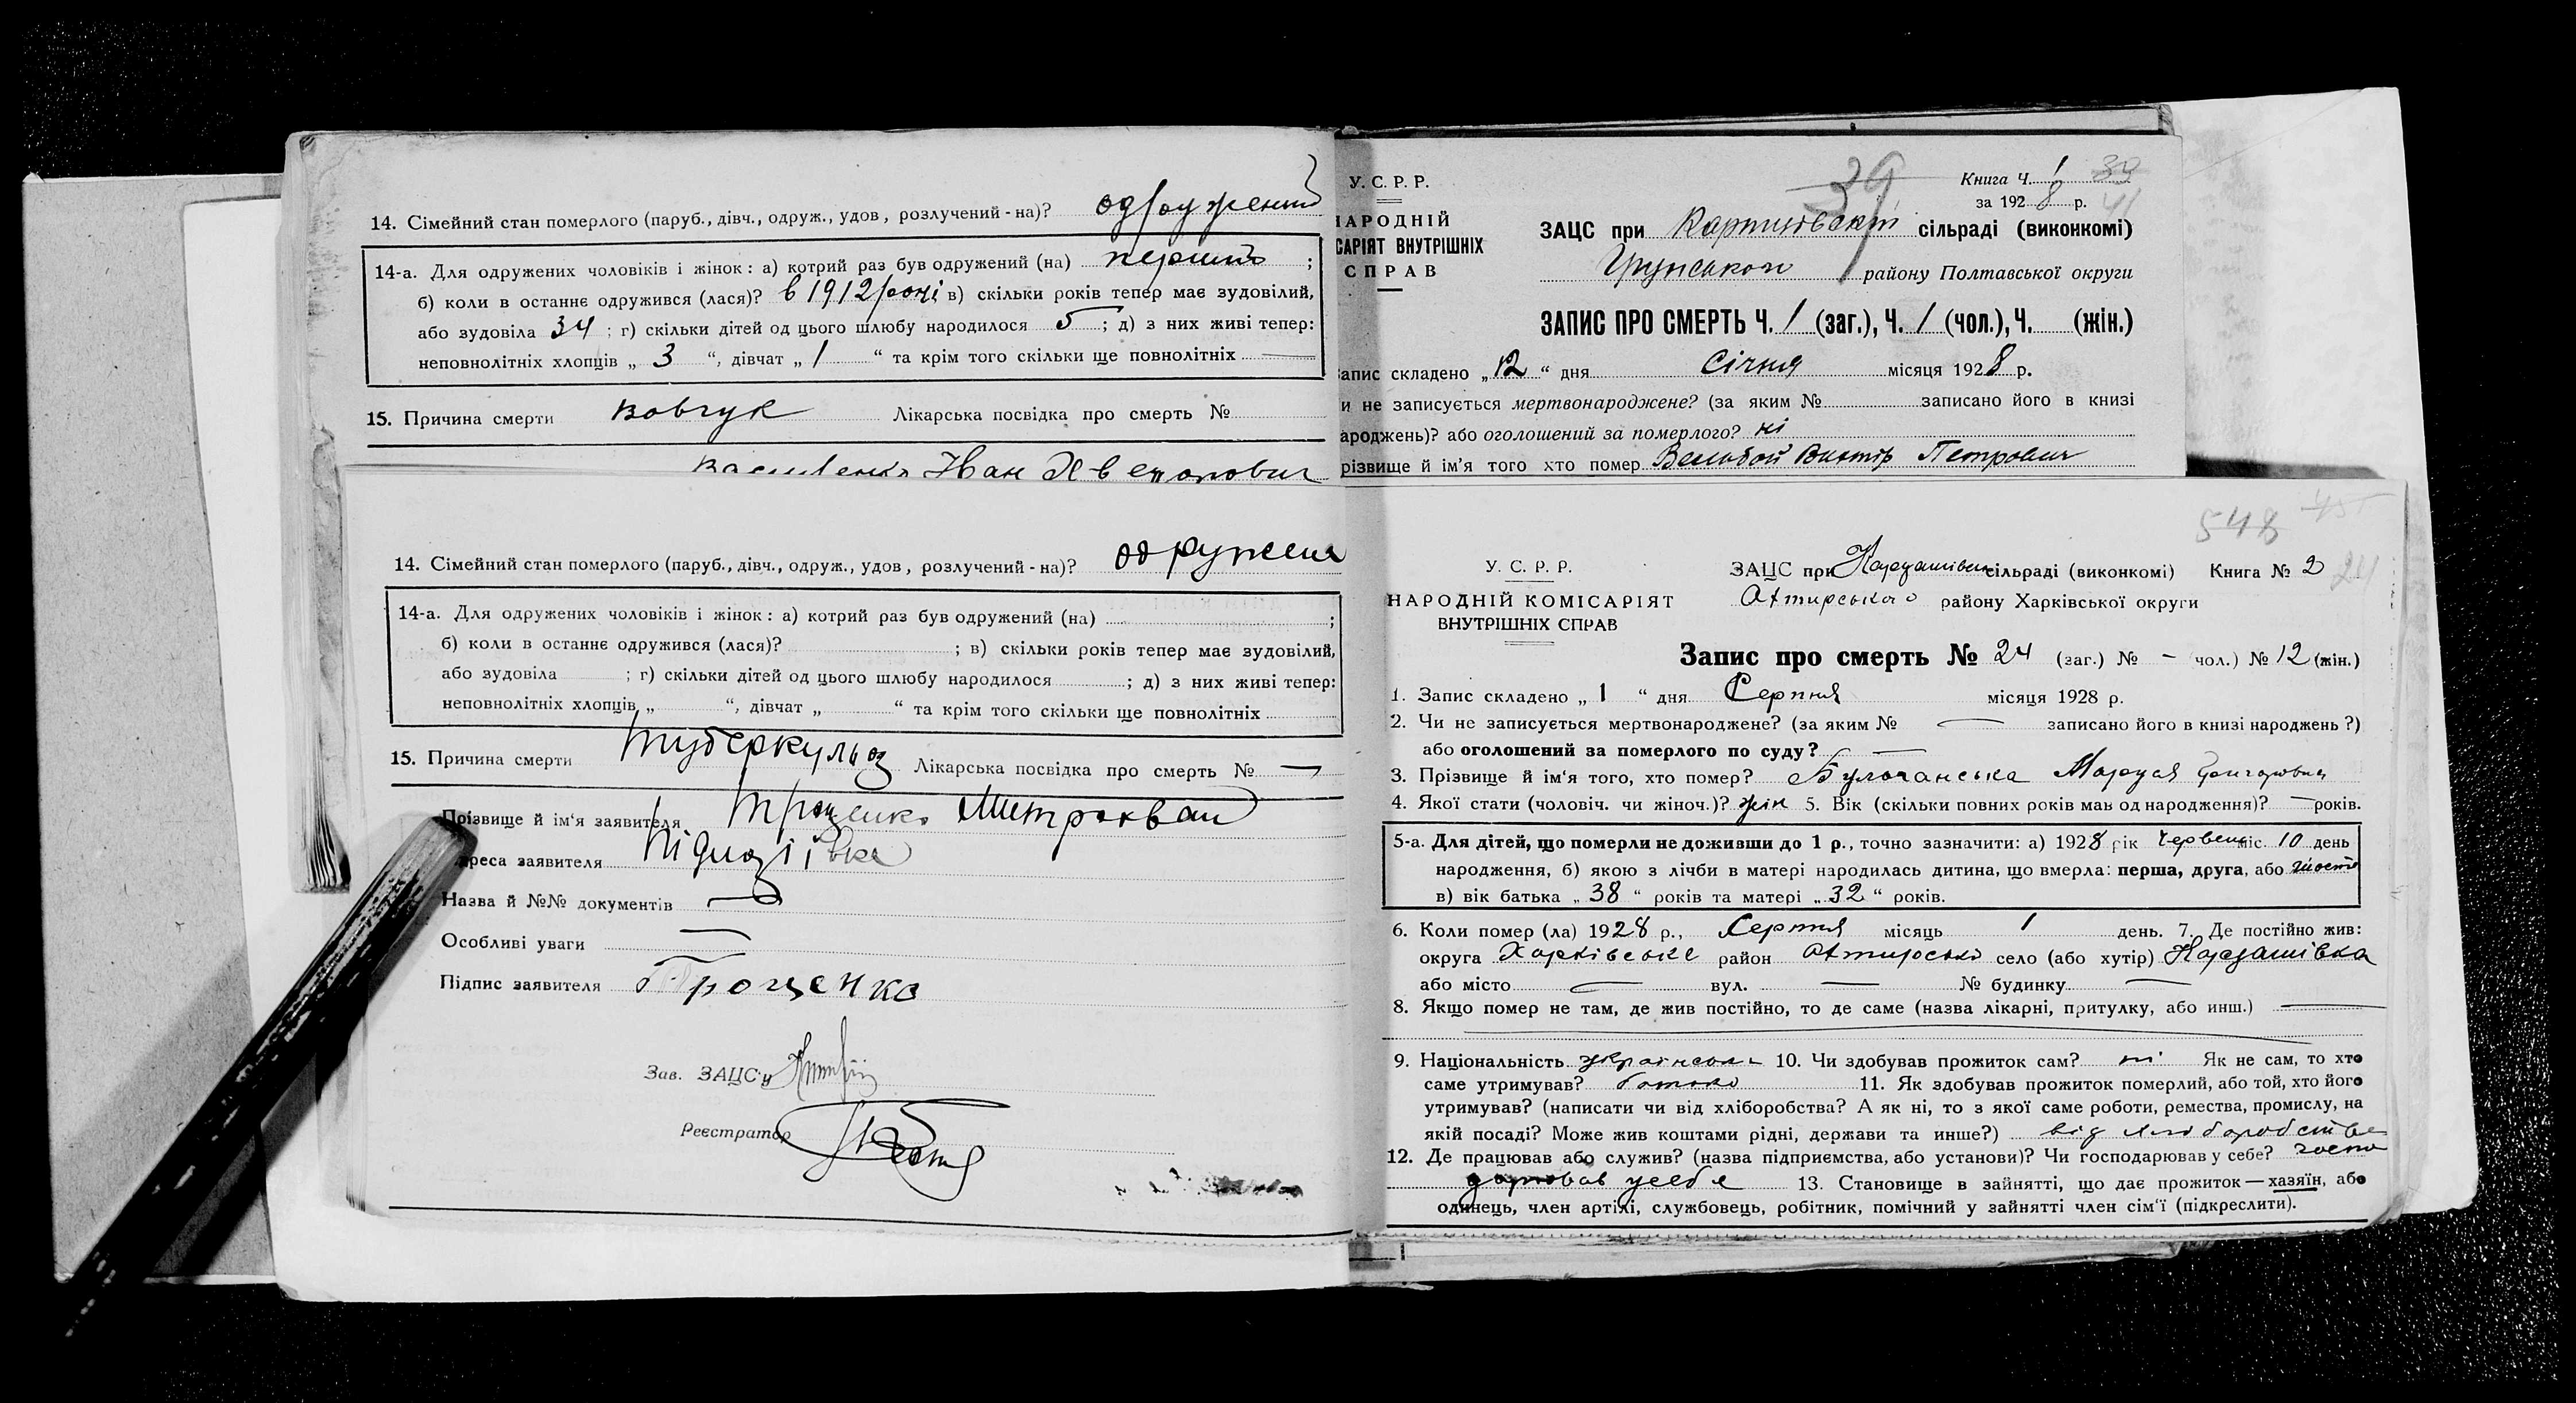 14. Сімейний стан померлого (паруб., дівч., одруж., удов, розлучений - на)? одружений
14-а. Для одружених чоловіків і жінок: а) котрий раз був одружений (на) перший ;
б) коли в останнє одружився (лася)? в 1912 році в) скільки років тепер має зудовілий,
або зудовіла 34 ; г) скільки дітей од цього шлюбу народилося 5 ; д) з них живі тепер:
неповнолітніх хлопців „ 3 “, дівчат „ 1 “ та крім того скільки ще повнолітніх —
15. Причина смерти вовчук Лікарська посвідка про смерть №
Іван
14. Сімейний стан померлого (паруб., дівч., одруж., удов, розлучений - на)? одружена
14-а. Для одружених чоловіків і жінок: а) котрий раз був одружений (на) ;
б) коли в останнє одружився (лася)? ; в) скільки років тепер має зудовілий,
або зудовіла ; г) скільки дітей од цього шлюбу народилося ; д) з них живі тепер:
неповнолітніх хлопців „ “, дівчат „ “ та крім того скільки ще повнолітніх
15. Причина смерти туберкульоз Лікарська посвідка про смерть № —
Прізвище й ім‘я заявителя Троценко Митрохван
адреса заявителя
Назва й №№ документів —
Особливі уваги —
Підпис заявителя Троценко
Зав. ЗАЦС‘у
Реєстратор
39
Книга Ч. 1 39
У. С. Р. Р.
за 192 8 р. 41
НАРОДНІЙ
САРІЯТ ВНУТРІШНІХ
СПРАВ
ЗАЦС при сільраді (виконкомі)
Грунського району Полтавської округи
ЗАПИС ПРО СМЕРТЬ Ч. 1 (заг.), Ч. 1 (чол.), Ч. (жін.)
апис складено „ 12 “ дня Січня місяця 192 8 р.
и не записується мертвонароджене? (за яким № записано його в книзі
ароджень)? або оголошений за померлого? ні
різвище й ім‘я того хто помер Віктір Петрович
548
У. С. Р. Р.
НАРОДНІЙ КОМІСАРІЯТ
ВНУТРІШНІХ СПРАВ
ЗАЦС при Кардашівськ сільраді (виконкомі) Книга № 2 24
Охтирського району Харківської округи
Запис про смерть № 24 (заг.) № - чол.) № 12 (жін.)
1. Запис складено „ 1 “ дня Серпня місяця 1928 р.
2. Чи не записується мертвонароджене? (за яким № — записано його в книзі народжень?)
або оголошений за померлого по суду? —
3. Прізвище й ім‘я того, хто помер? Маруся Григоровна
4. Якої стати (чоловіч. чи жіноч.)? жін 5. Вік (скільки повних років мав од народження)? — років.
5-а. Для дітей, що померли не доживши до 1 р., точно зазначити: а) 1928 рік Червень міс. 10 день
народження, б) якою з лічби в матері народилась дитина, що вмерла: перша, друга, або шоста
в) вік батька „ 38 “ років та матері „ 32 “ років.
6. Коли помер (ла) 1928 р., Серпня місяць 1 день. 7. Де постійно жив:
округа Харківське район Охтирські село (або хутір) Кардашівка
або місто — вул. — № будинку —
8. Якщо помер не там, де жив постійно, то де саме (назва лікарні, притулку, або инш.) —
9. Національність українська 10. Чи здобував прожиток сам? ні Як не сам, то хто
саме утримував? батько 11. Як здобував прожиток померлий, або той, хто його
утримував? (написати чи від хліборобства? А як ні, то з якої саме роботи, ремества, промислу, на
якій посаді? Може жив коштами рідні, держави та инше?) від хліборобства
12. Де працював або служив? (назва підприємства, або установи)? Чи господарював у себе? госпо
дарював усебе 13. Становище в зайнятті, що дає прожиток — хазяїн, або
одинець, член артілі, службовець, робітник, помічний у зайнятті член сім‘ї (підкреслити).